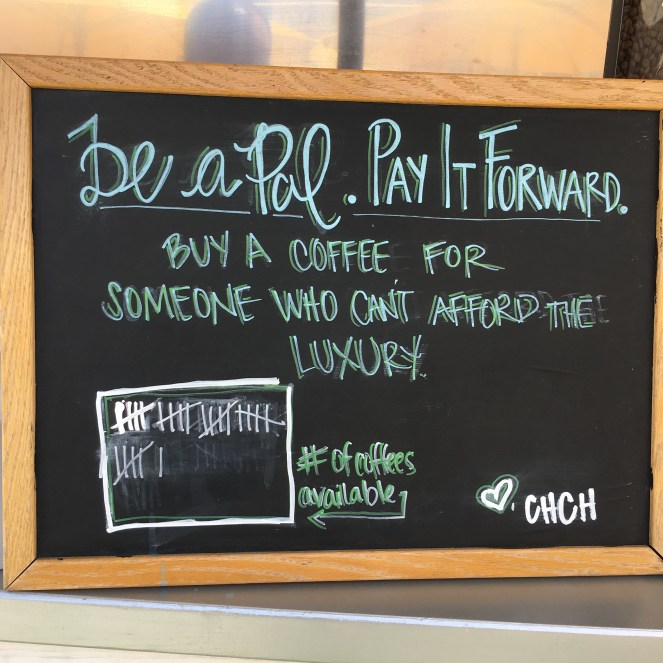 be a Pal. PAY IT FORWARD.
BUY A COFFEE FOR
SOMEONE WHO CAN'T AFFORD THE
LUXURY.
# of coffees
available
♡. CHCH